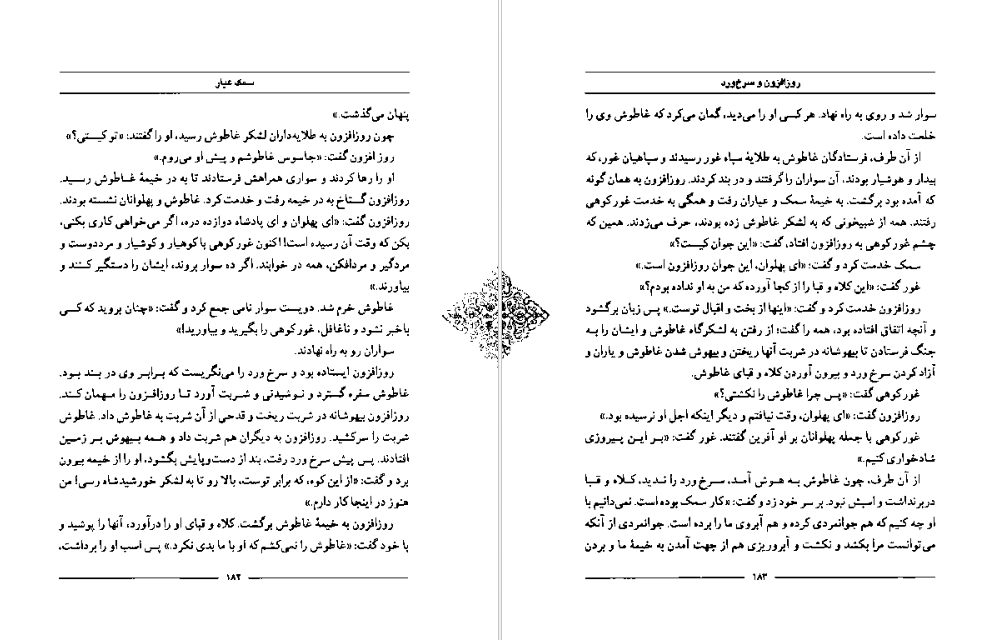 سمک عیار
پنهان می‌گذشت.»
چون روزافزون به طلایه‌داران لشکر غاطوش رسید، او را گفتند: «تو کیستی؟»
روزافزون گفت: «جاسوس غاطوشم و پیش او می‌روم.»
او را رها کردند و سواری همراهش فرستادند تا به در خیمهٔ غاطوش رسید.
روزافزون گستاخ به در خیمه رفت و خدمت کرد. غاطوش و پهلوانان نشسته بودند.
روزافزون گفت: «ای پهلوان و ای پادشاه دوازده دره، اگر می‌خواهی کاری بکنی،
بکن که وقت آن رسیده است! اکنون غورکوهی باکوهیار و کوشیار و مرددوست و
مردگیر و مردافکن، همه در خوابند. اگر ده سوار بروند، ایشان را دستگیر کنند و
بیاورند.»
غاطوش خرم شد. دویست سوار نامی جمع کرد و گفت: «چنان بروید که کسی
باخبر نشود و ناغافل، غورکوهی را بگیرید و بیاورید!»
سواران رو به راه نهادند.
روزافزون ایستاده بود و سرخ ورد را می‌نگریست که برابر وی در بند بود.
غاطوش سفره گسترد و نوشیدنی و شربت آورد تا روزافزون را مهمان کند.
روزافزون بیهوشانه در شربت ریخت و قدحی از آن شربت به غاطوش داد. غاطوش
شربت را سرکشید. روزافزون به دیگران هم شربت داد و همه بیهوش بر زمین
افتادند. پس پیش سرخ ورد رفت، بند از دست‌وپایش بگشود، او را از خیمه بیرون
برد و گفت: «از این کوه، که برابر توست، بالا رو تا به لشکر خورشیدشاه رسی! من
هنوز در اینجا کار دارم.»
روزافزون به خیمهٔ غاطوش برگشت. کلاه و قبای او را درآورد، آنها را پوشید و
با خود گفت: «غاطوش را نمی‌کشم که او با ما بدی نکرد.» پس اسب او را برداشت،
۱۸۲
روزافزون و سرخ‌ورد
سوار شد و روی به راه نهاد. هر کسی او را می‌دید، گمان می‌کرد که غاطوش وی را
خلعت داده است.
از آن طرف، فرستادگان غاطوش به طلایهٔ سپاه غور رسیدند و سپاهیان غور، که
بیدار و هوشیار بودند، آن سواران را گرفتند و در بند کردند. روزافزون به همان گونه
که آمده بود برگشت. به خیمهٔ سمک و عیاران رفت و همگی به خدمت غورکوهی
رفتند. همه از شبیخونی که به لشکر غاطوش زده بودند، حرف می‌زدند. همین که
چشم غورکوهی به روزافزون افتاد، گفت: «این جوان کیست؟»
سمک خدمت کرد و گفت: «ای پهلوان، این جوان روزافزون است.»
غور گفت: «این کلاه و قبا را از کجا آورده که من به او نداده بودم؟»
روزافزون خدمت کرد و گفت: «اینها از بخت و اقبال توست.» پس زبان برگشود
و آنچه اتفاق افتاده بود، همه را گفت؛ از رفتن به لشکرگاه غاطوش و ایشان را به
جنگ فرستادن تا بیهوشانه در شربت آنها ریختن و بیهوش شدن غاطوش و یاران و
آزاد کردن سرخ ورد و بیرون آوردن کلاه و قبای غاطوش.
غورکوهی گفت: «پس چرا غاطوش را نکشتی؟»
روزافزون گفت: «ای پهلوان، وقت نیافتم و دیگر اینکه اجل او نرسیده بود.»
غورکوهی با جمله پهلوانان بر او آفرین گفتند. غور گفت: «بر این پیروزی
شادخواری کنیم.»
از آن طرف، چون غاطوش به هوش آمد، سرخ ورد را ندید، کلاه و قبا
دربرنداشت و اسبش نبود. بر سر خود زد و گفت: «کار سمک بوده است. نمی‌دانیم با
او چه کنیم که هم جوانمردی کرده و هم آبروی ما را برده است. جوانمردی از آنکه
می‌توانست مرا بکشد و نکشت و آبروریزی هم از جهت آمدن به خیمهٔ ما و بردن
۱۸۳